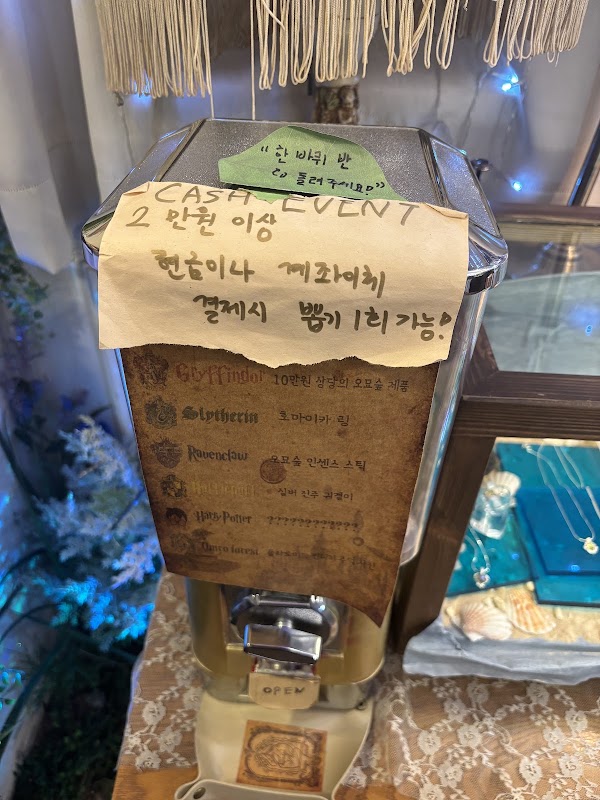 "한 바퀴 반
돌려주세요!"
CASH EVENT
2 만원 이상
현금이나 계좌이체
결제시 뽑기 1회 가능!
Gryffindor 10만원 상당의 오묘숲 제품
Slytherin 호마이카 링
Ravenclaw 오묘숲 인센스 스틱
Hufflepuff 실버 진주 귀걸이
Harry Potter ??????????????
forest
OPEN